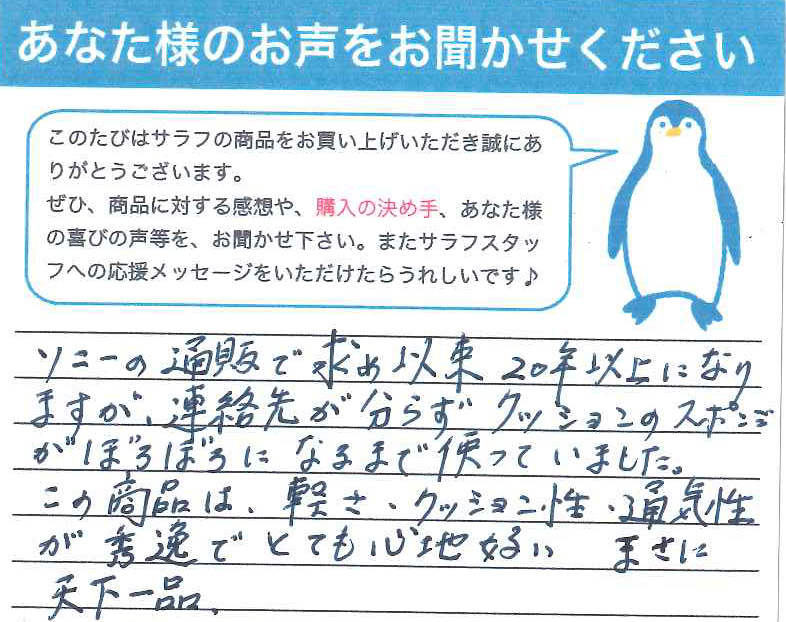 あなた様のお声をお聞かせください
このたびはサラフの商品をお買い上げいただき誠にあ
りがとうございます。
ぜひ、商品に対する感想や、購入の決め手、あなた様
の喜びの声等を、お聞かせ下さい。またサラフスタッ
フへの応援メッセージをいただけたらうれしいです♪
ソニーの通販で求め以来20年以上になり
ますが、連絡先が分らずクッションのスポンジ
がぼろぼろになるまで使っていました。
この商品は、軽さ・クッション性・通気性
が秀逸でとても心地好い まさに
天下一品、